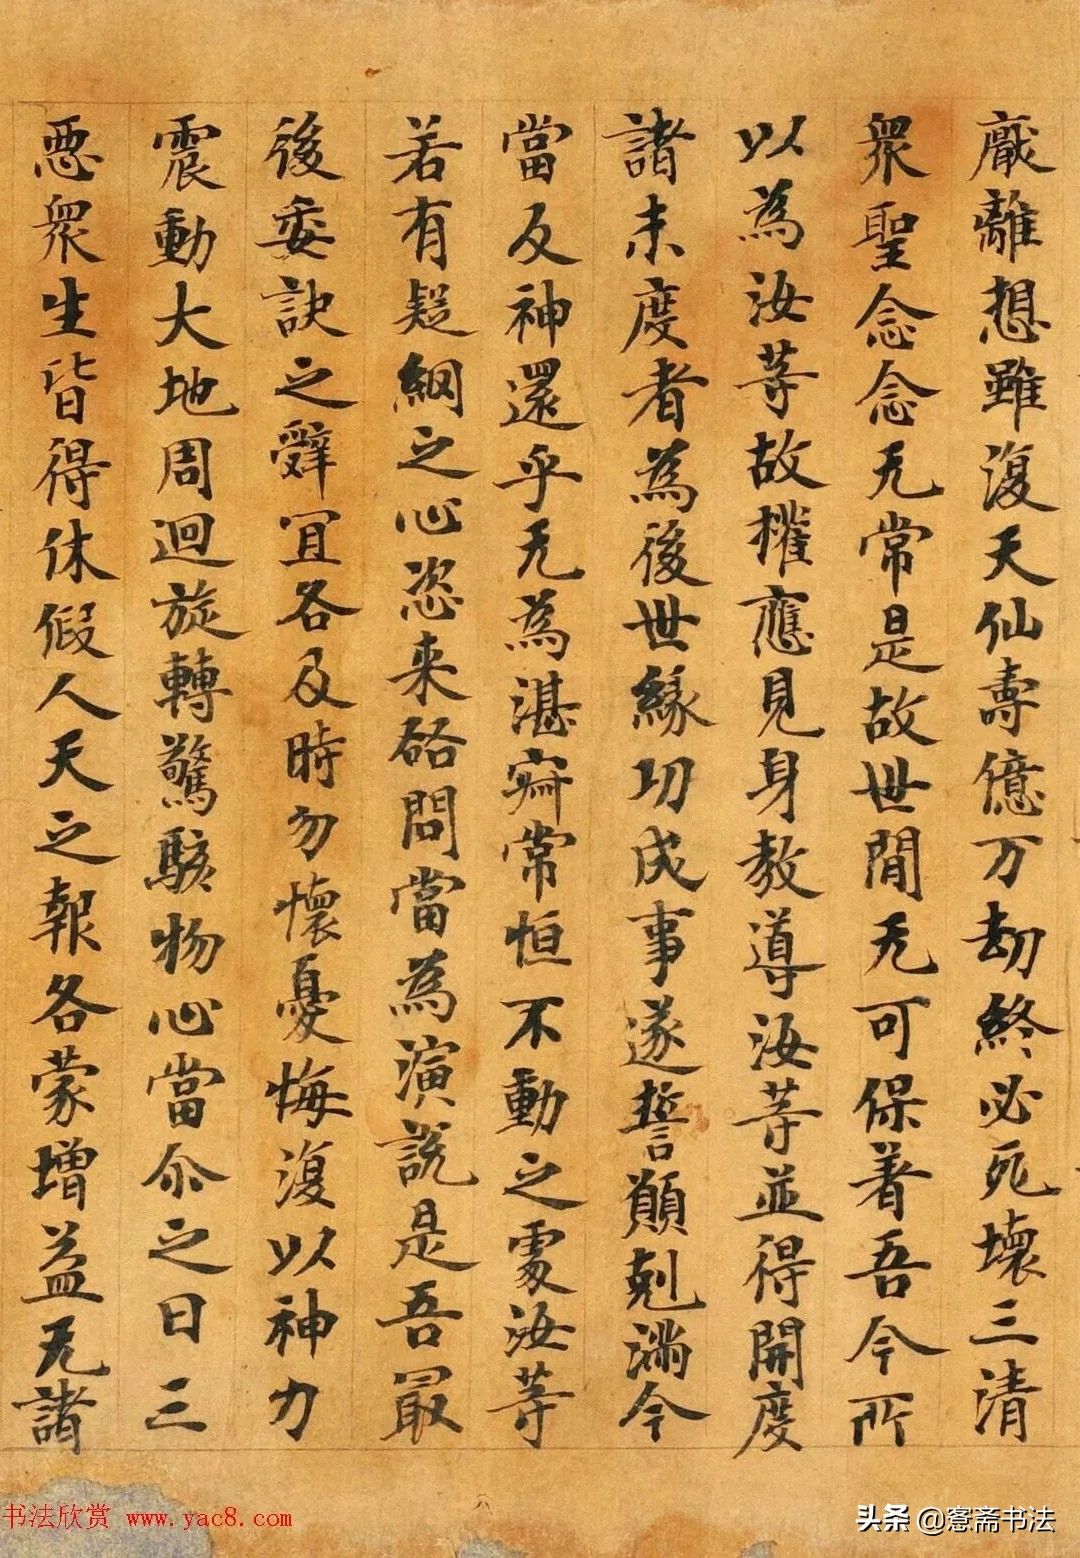 厰離想雖復天仙壽億万劫終必死壞三清
衆聖念念无常是故世間无可保着吾今所
以為汝等故權應見身教導汝等並得開度
諸未度者為後世緣功成事遂誓願剋滿今
當反神還乎无為湛寂常恒不動之處汝等
若有疑網之心恣来硌問當為演說是吾冣
後委訣之辤宜各及時勿懷憂悔復以神力
震動大地周迴旋轉驚駭物心當尒之日三
惡衆生皆得休假人天之報各蒙增益无諸
书法欣赏 www.yac8.com
头条 @窓斋书法